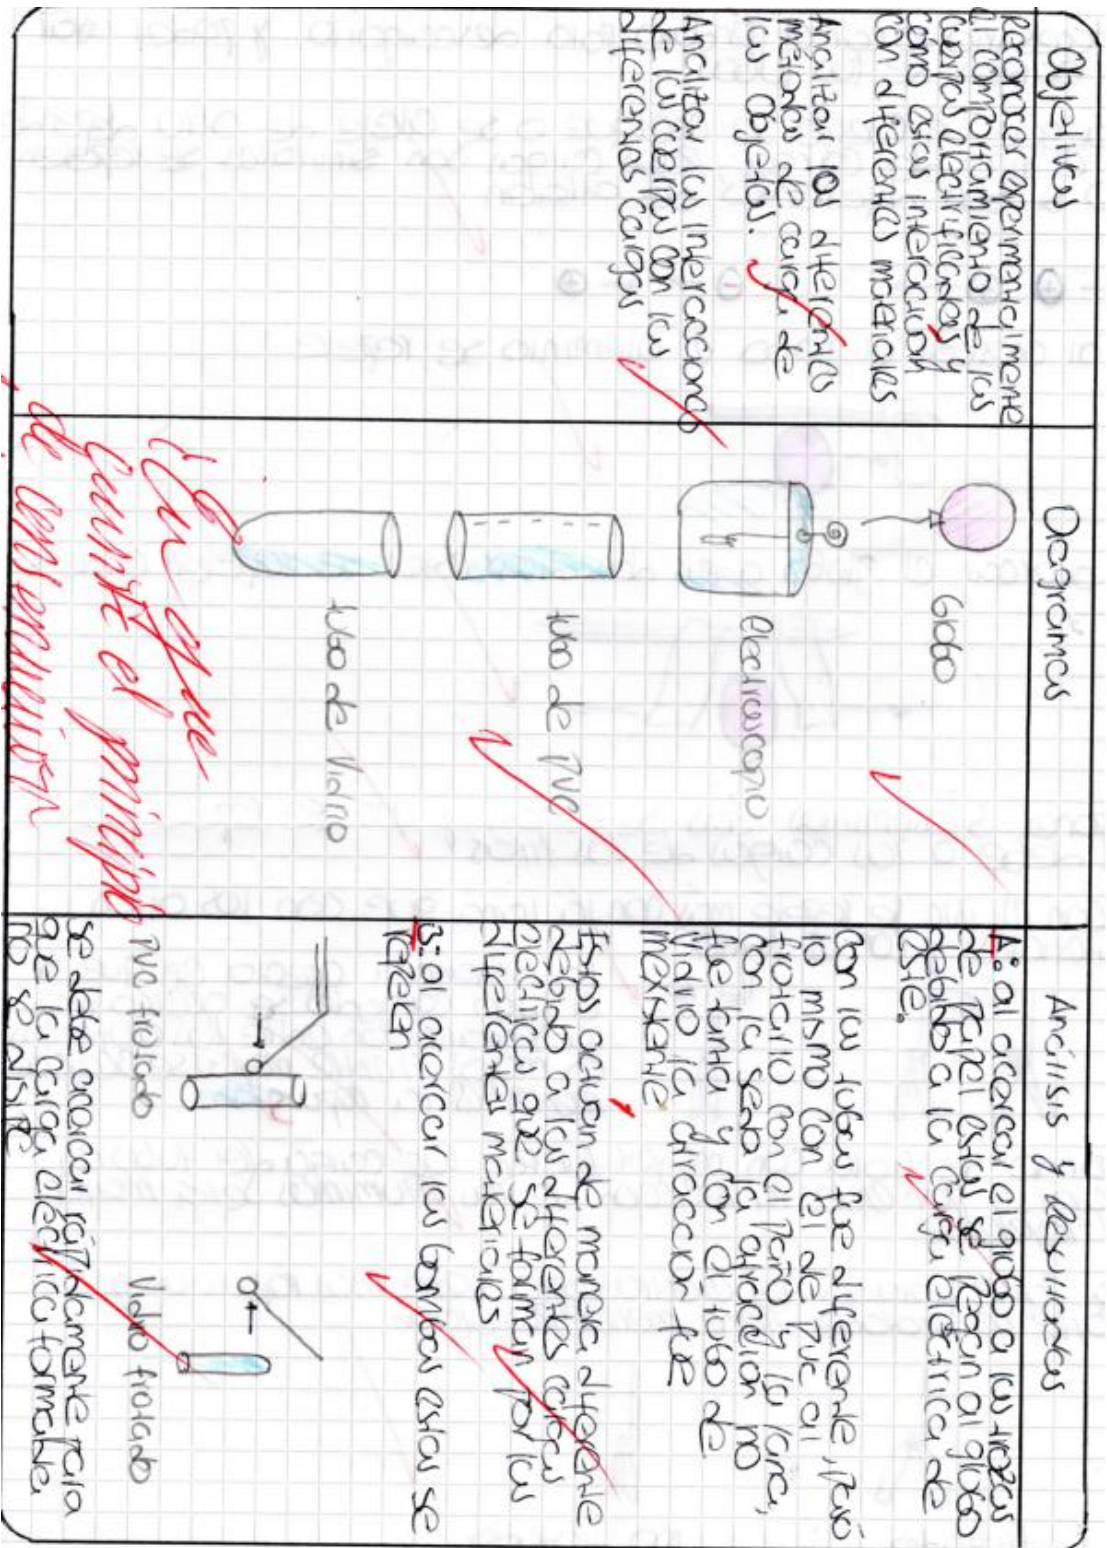 Objetivos
Reconocer experimentalmente
el comportamiento de los
cuerpos electrificados y
cómo estos interactuan
con diferentes materiales
Analizar los diferentes
metodos de carga de
los Objetos.
Analizar las interacciones
de los cuerpos con las
diferentes cargas
Diagramas
Globo
Electroscopio
tubo de PVC
tubo de Vidrio
¿En que
cumple el principio
de
Análisis y Resultados
A: al acercar el globo a los trozos
de papel estos se pegan al globo
debido a la carga eléctrica de
este.
Con los tubos fue diferente, pasó
lo mismo con el de PVC al
frotarlo con el paño y la lana,
con la seda la atracción no
fue tanta y con el tubo de
vidrio la atracción fue
inexistente
Estos actuan de manera diferente
debido a las diferentes cargas
electricas que se forman por los
diferentes materiales
B: al acercar las bombas estas se
repelen
PVC frotado
Vidrio frotado
se debe acercar rápidamente para
que la carga eléctrica formable
no se disipe